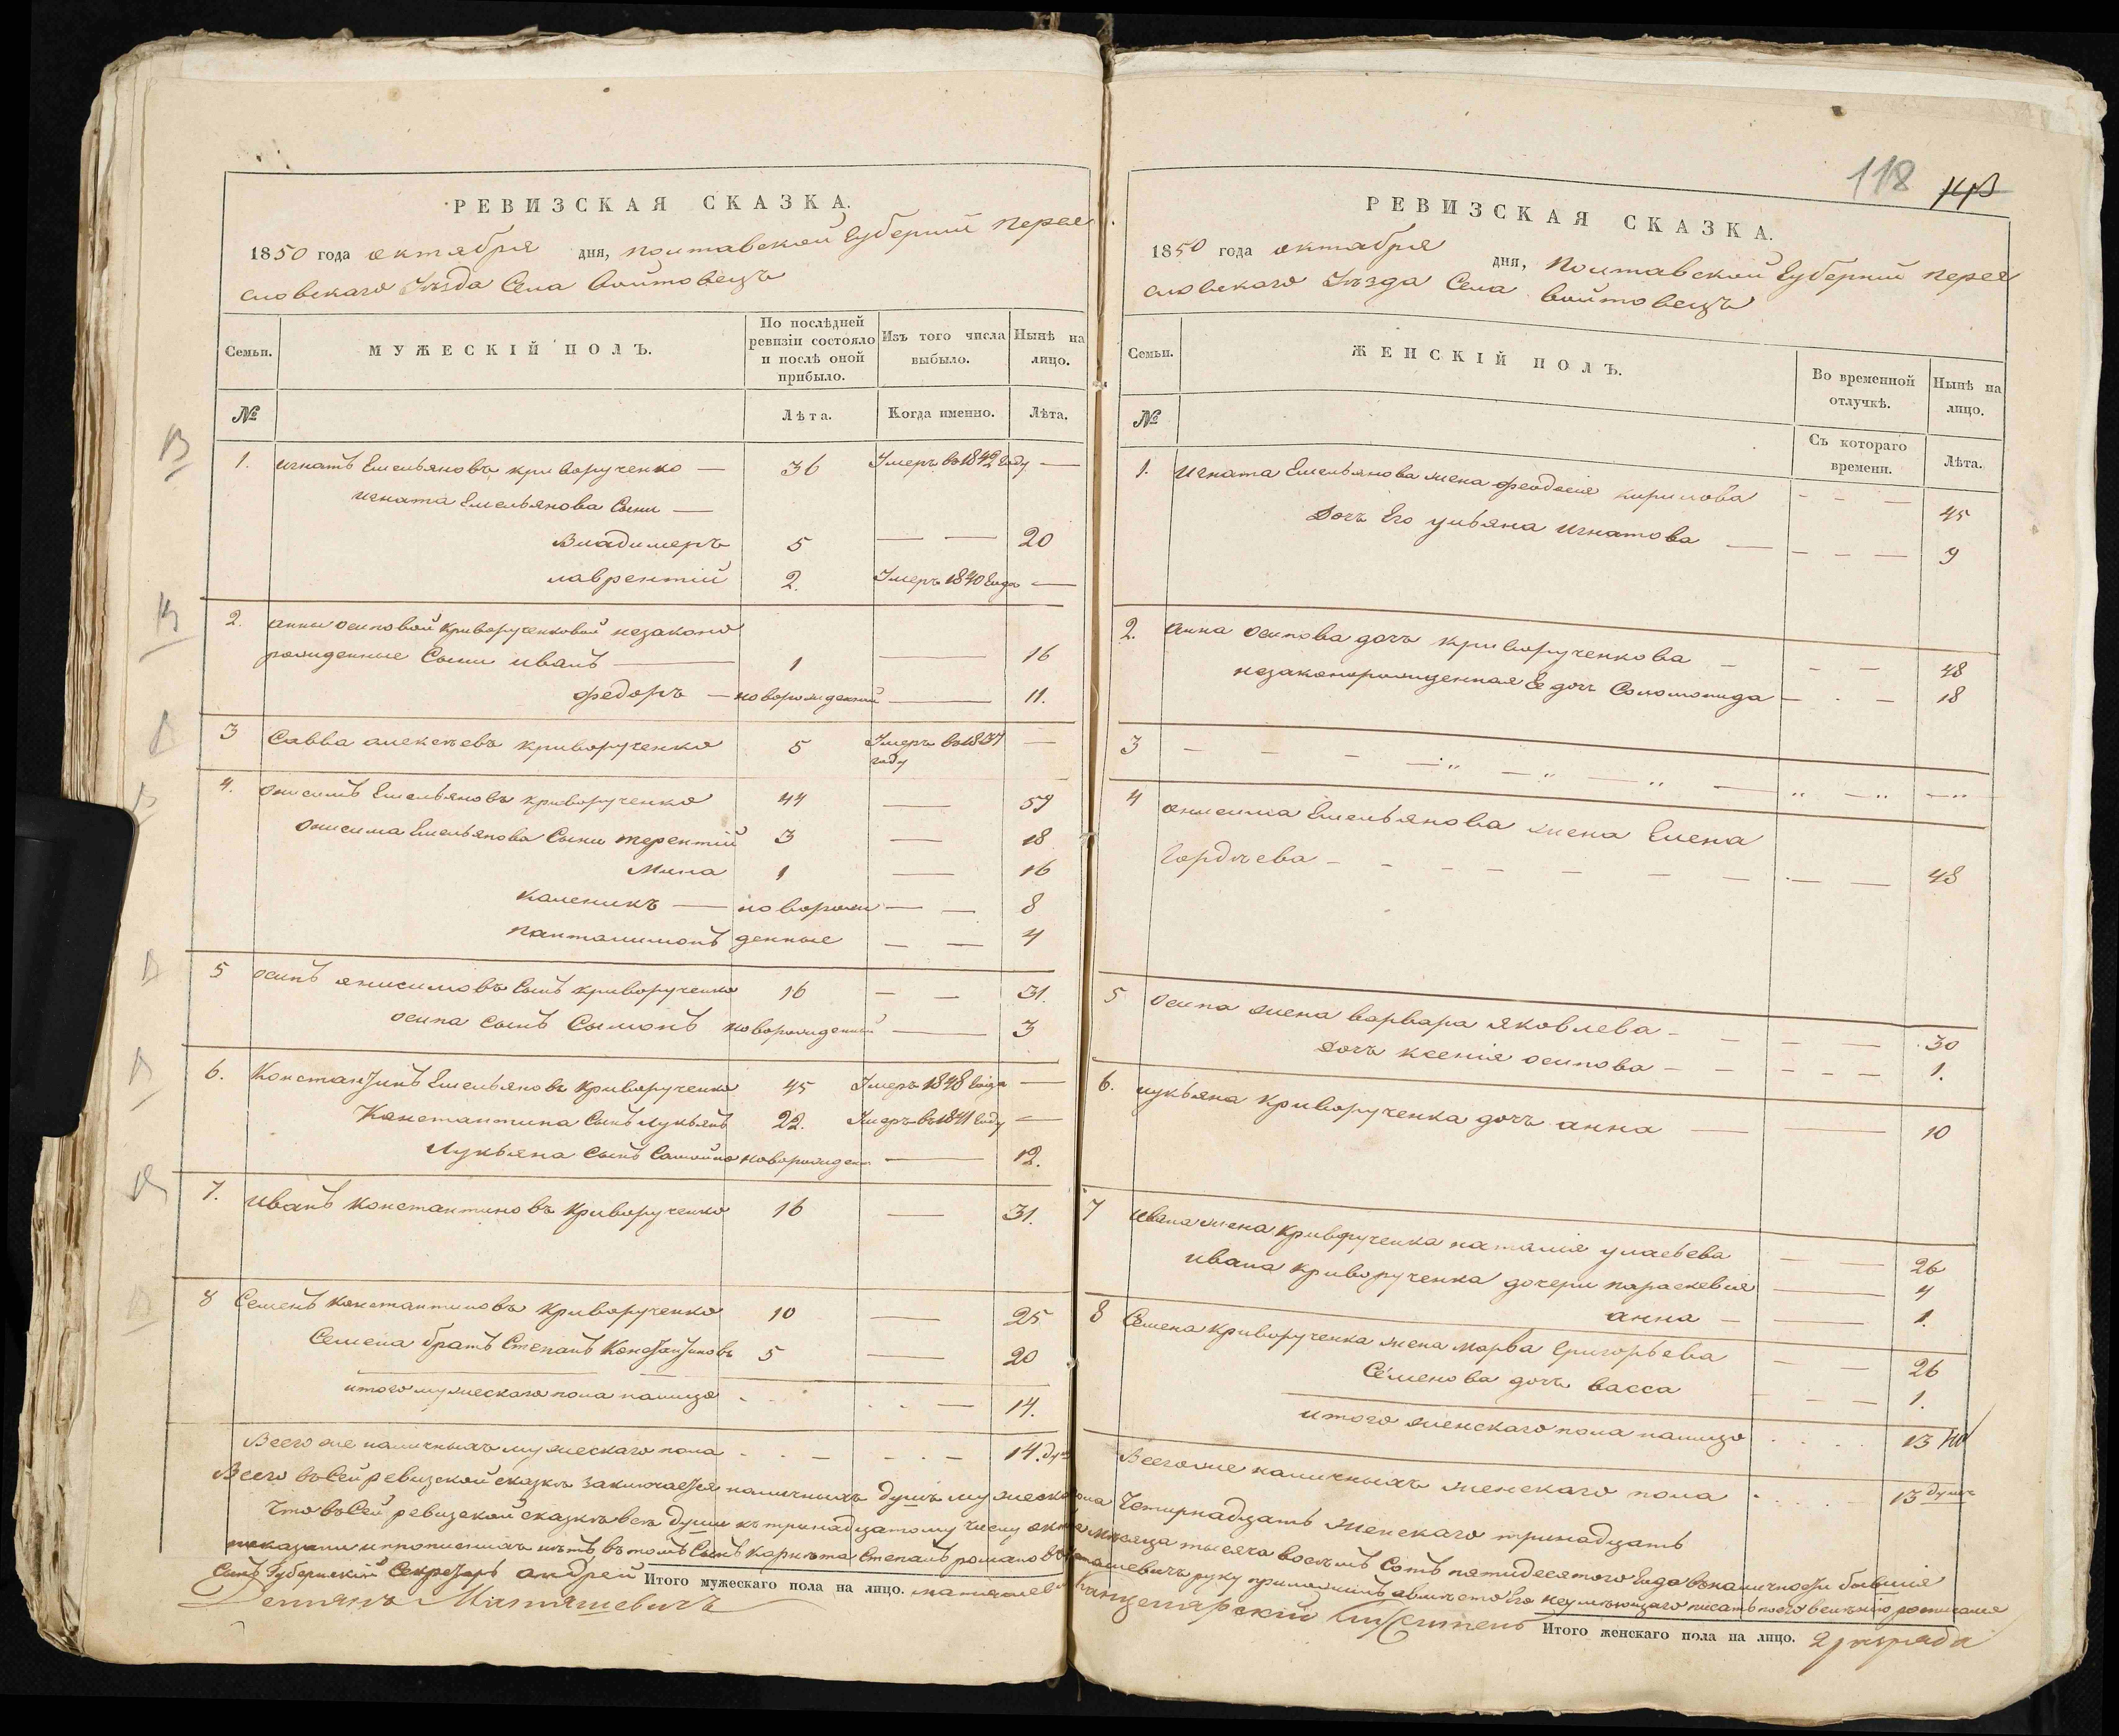 РЕВИЗСКАЯ СКАЗКА.
1850 года октября дня, Полтавской Губернии Перея
словского Уезда Села Войтовецъ
Семьи.
МУЖЕСКІЙ ПОЛЪ.
По послѣдней ревизіи состояло и послѣ оной прибыло.
Изъ того числа выбыло.
Нынѣ на лицо.
№
Лѣта.
Когда именно.
Лѣта.
1. Игнатъ Емельяновъ Криворученко — 36 Умеръ въ 1842 году —
Игната Емельянова Сыни —
Владимеръ 5 — — 20
Лаврентій 2. Умеръ 1840 Года —
2. Анны Осиповой Криворученковой незаконо
рожденные Сыни Иванъ — 1 — 16
Федоръ — новорожденый — 11.
3 Савва Алексѣевъ Криворученко 5 Умеръ въ 1837 —
году
4. Онисимъ Емельяновъ Криворученко 44 — 59
Онисима Емельянова Сыни Терентій 3 — 18
Мина 1 — 16
Каленикъ — новорож — — 8
Пантелимонъ денные — — 4
5 Осипъ Анисимовъ Сынъ Криворученко 16 — — 31.
Осипа Сынъ Сымонъ новорожденый — 3
6. Константинъ Емельяновъ Криворученко 45 Умеръ 1848 Года —
Константина Сынъ Лукьянъ 22. Умеръ въ 1841 Году —
Лукьяна Сынъ Самойло новорожден — 12.
7. Иванъ Константиновъ Криворученко 16 — 31.
8 Семенъ Константиновъ Криворученко 10 — 25
Семена братъ Степанъ Константиновъ 5 — 20
Итого мужескаго пола налицо 14.
Всего же наличныхъ мужескаго пола 14. душ
Всего въ сей ревизской сказкѣ заключается наличныхъ душъ мужеска
Что въ сей ревизской сказкѣ все души къ тринадцатому числу
показаны и прописныхъ нѣтъ въ томъ Сынъ Корнета Степанъ Романовъ
Сынъ Губернский Секретарь Андрей
Итого мужескаго пола на лицо.
Демьянъ Матяшевичъ
118
РЕВИЗСКАЯ СКАЗКА.
1850 года октября дня, Полтавской Губернии Перея
словского Уезда Села Войтовецъ
Семьи.
ЖЕНСКІЙ ПОЛЪ.
Во временной отлучкѣ.
Нынѣ на лицо.
№
Съ котораго времени.
Лѣта.
1. Игната Емельянова жена Феодосія Кирилова - - — 45
Дочь Его Ульяна Игнатова — - - — 9
2. Анна Осипова дочь Криворученкова - - — 48
незаконорожденная Ее дочь Соломонида — - — 18
3 - - -
4 Онисима Емельянова жена Елена
Гордѣева - - - - - - — — 48
5 Осипа жена Варвара Яковлева - - - — 30
Дочь Ксенія Осипова - - - - — 1.
6. Лукьяна Криворученка дочь Анна — — 10
7 Ивана жена Криворученка Наталія Уласьева — — 26
Ивана Криворученка дочери Параскевія — 4
Анна - — 1.
8 Семена Криворученка жена Марва Григорьева — — 26
Семенова дочь Васса - - — 1.
Итого женскаго пола налицо 13
Всего же наличныхъ женскаго пола 13 душъ
пола Четырнадцать Женскаго тринадцать
мѣсяца тысяча восемь Сотъ пятидесятого Года въ наличности бывшіе
руку приложилъ а вместо Его неумѣющаго писать
Канцелярскій Служитель
Итого женскаго пола на лицо.
2 разряда